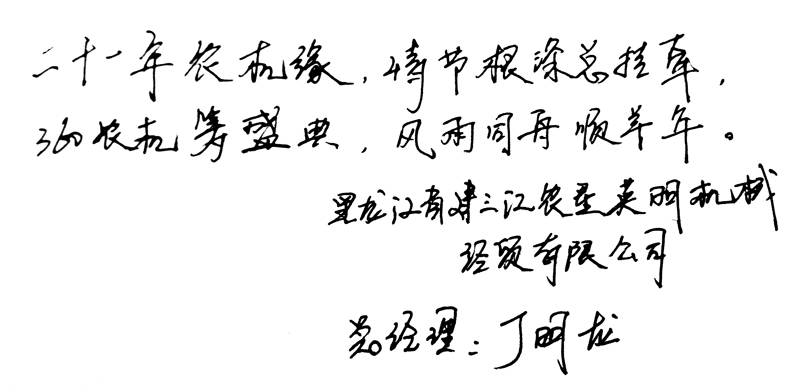 二十一年农机缘,情节根深总挂牵,
360农机筹盛典,风雨同再顺羊年。
黑龙江省建三江农垦英明机械
经贸有限公司
总经理:丁明龙